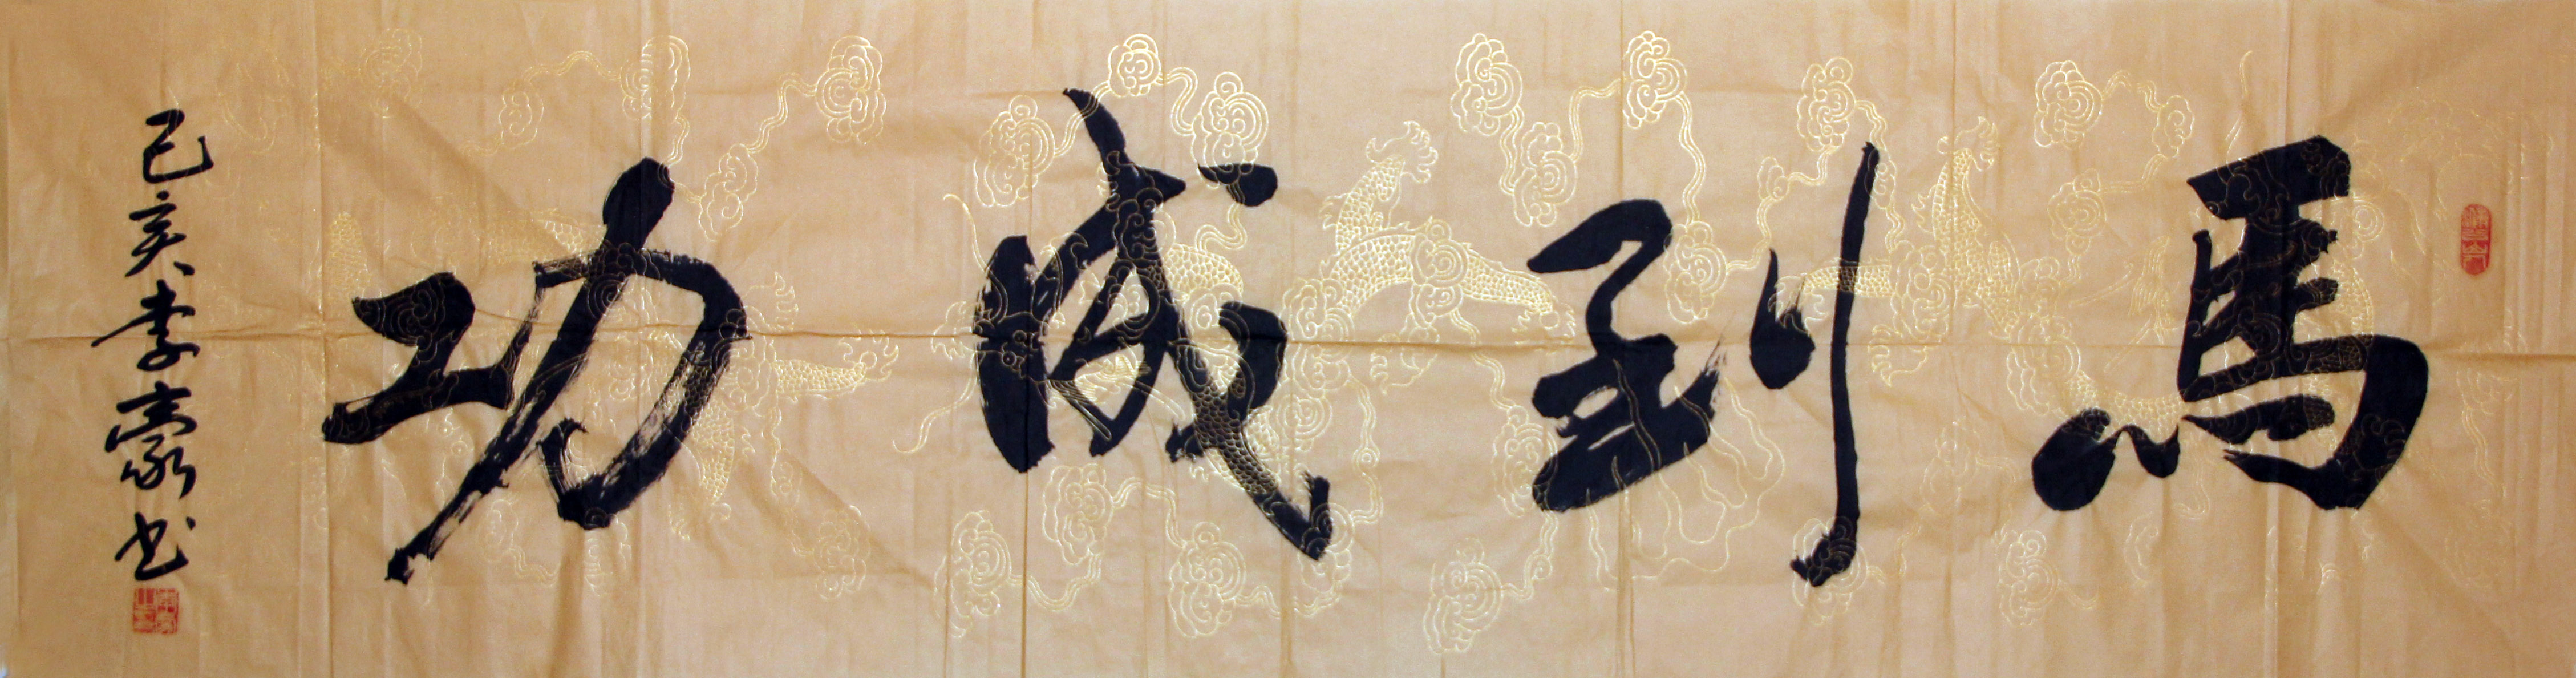 馬到成功
己亥李豪书